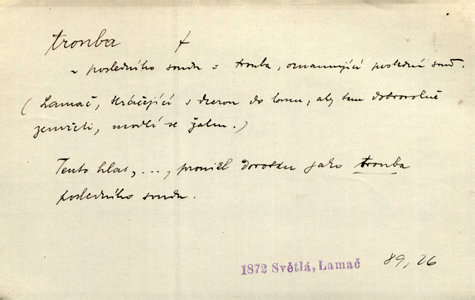 trouba f
~ posledního soudu s trouba, oznamující poslední soud.
(Lamač, kráčející s dcerou do lomu, aby tam dobrovolně
zemřeli, modlí se žalm.)
Tento hlas, ..., pronikl doposud jako trouba
posledního soudu.
1872 Světlá, Lamač 89, 26